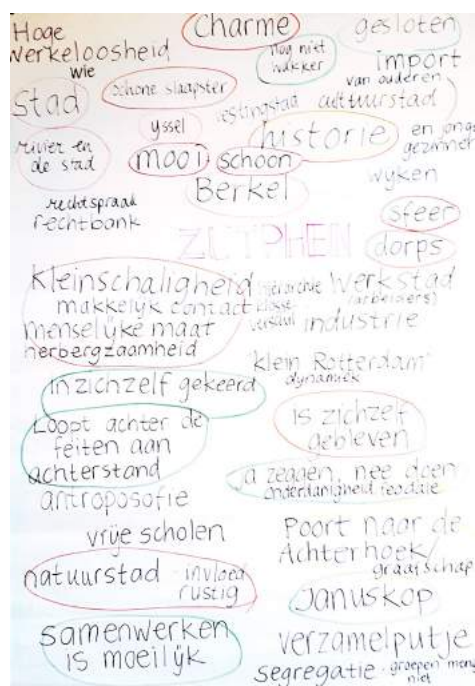 Hoge
werkeloosheid
wie
Charme
gesloten
nog niet
wakker
import
van ouderen
stad
schone slaapster
vestingstad
cultuurstad
yssel
historie
en jonge
gezinnen
rivier en
de stad
mooi
schoon
wyken
Berkel
rechtspraak
rechtbank
sfeer
ZUTPHEN
dorps
Kleinschaligheid
makkelyk contact
menselyke maat
herbergzaamheid
hierarchie
klasse
verschil
werkstad
(arbeiders)
industrie
'klein Rotterdam'
dynamiek
in zichzelf gekeerd
is zichzelf
gebleven
Loopt achter de
feiten aan
achterstand
ja zeggen, nee doen
onderdanigheid feodale
antroposofie
vrije scholen
Poort naar de
Achterhoek/
graafschap
natuurstad - invloed
rustig
Januskop
samenwerken
is moeilyk
verzamelputje
segregatie - groepen meng
niet